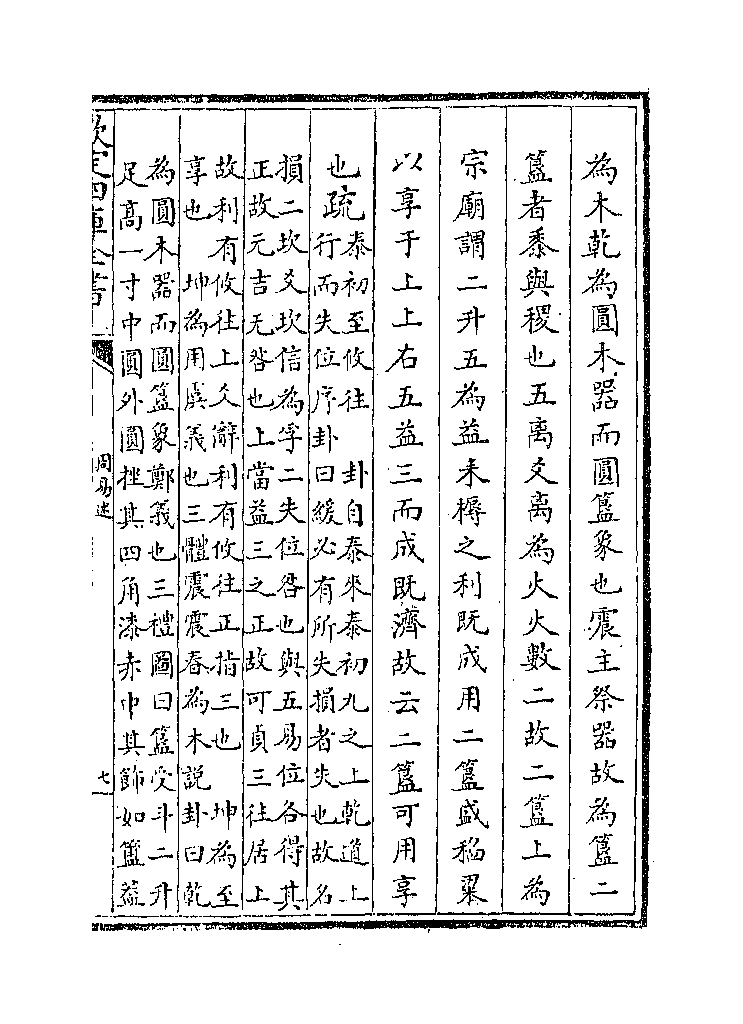 為木乾為圓木器而圓簋象也震主祭器故為簋二
簋者黍與稷也五離爻離為火火數二故二簋上為
宗廟謂二升五為益耒耨之利既成用二簋盛稻粱
以享于上上右五益三而成既濟故云二簋可用享
也疏
泰初至攸往　卦自泰來泰初九之上乾道上
行而失位序卦曰緩必有所失損者失也故名
損二坎爻坎信為孚二失位咎也與五易位各得其
正故元吉无咎也上當益三之正故可貞三往居上
故利有攸往上爻辭利有攸往正指三也　坤為至
享也　坤為用虞義也三體震震春為木說卦曰乾
為圓木器而圓簋象鄭義也三禮圖曰簋受斗二升
足高一寸中圓外圓挫其四角漆赤中其飾如簠葢
欽定四庫全書
周易述
七